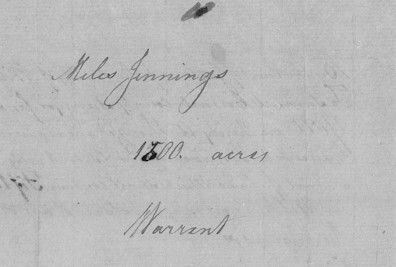 Miles Jennings
1500. acres
Warrant